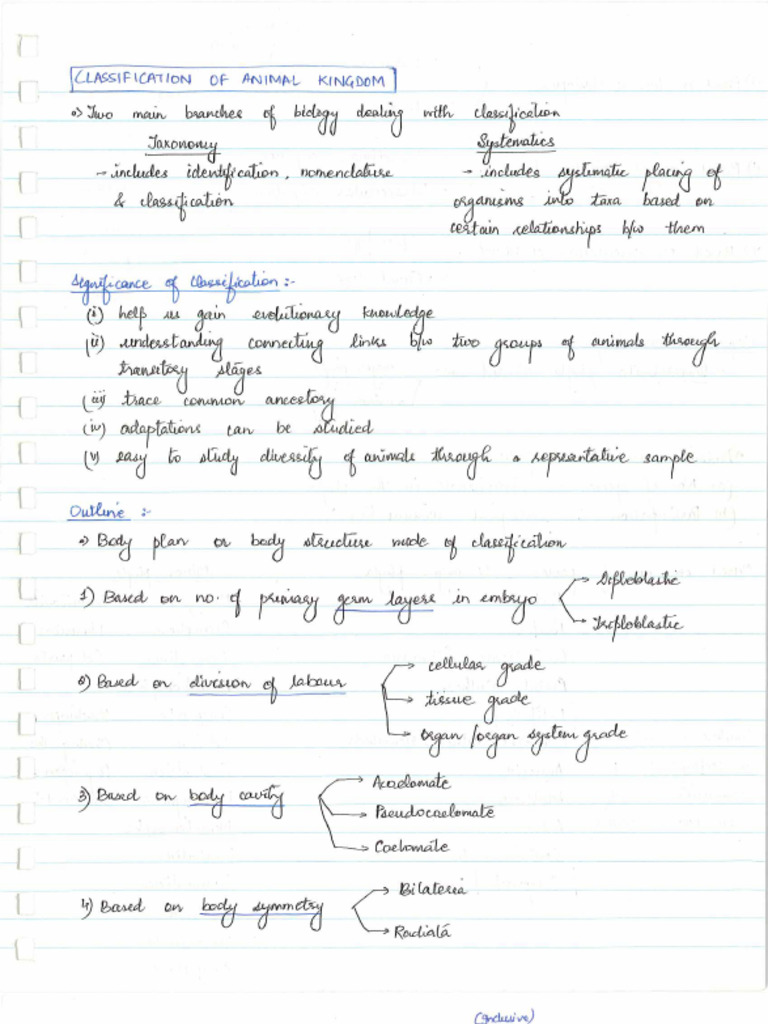 CLASSIFICATION OF ANIMAL KINGDOM
Two main branches of biology dealing with classification
Taxonomy
Systematics
- includes identification, nomenclature
& classification
- includes systematic placing of
organisms into taxa based on
certain relationships b/w them
Significance of classification :-
(i) help us gain evolutionary knowledge
(ii) understanding connecting links b/w two groups of animals through
transitory stages
(iii) trace common ancestory
(iv) adaptations can be studied
(v) easy to study diversity of animals through a representative sample
Outline :-
Body plan or body structure mode of classification
1) Based on no. of primary germ layers in embryo
Diploblastic
Triploblastic
Based on division of labour
cellular grade
tissue grade
organ/organ system grade
3) Based on body cavity
Acoelomate
Pseudocoelomate
Coelomate
4) Based on body symmetry
Bilateria
Radiata
(Inclusive)